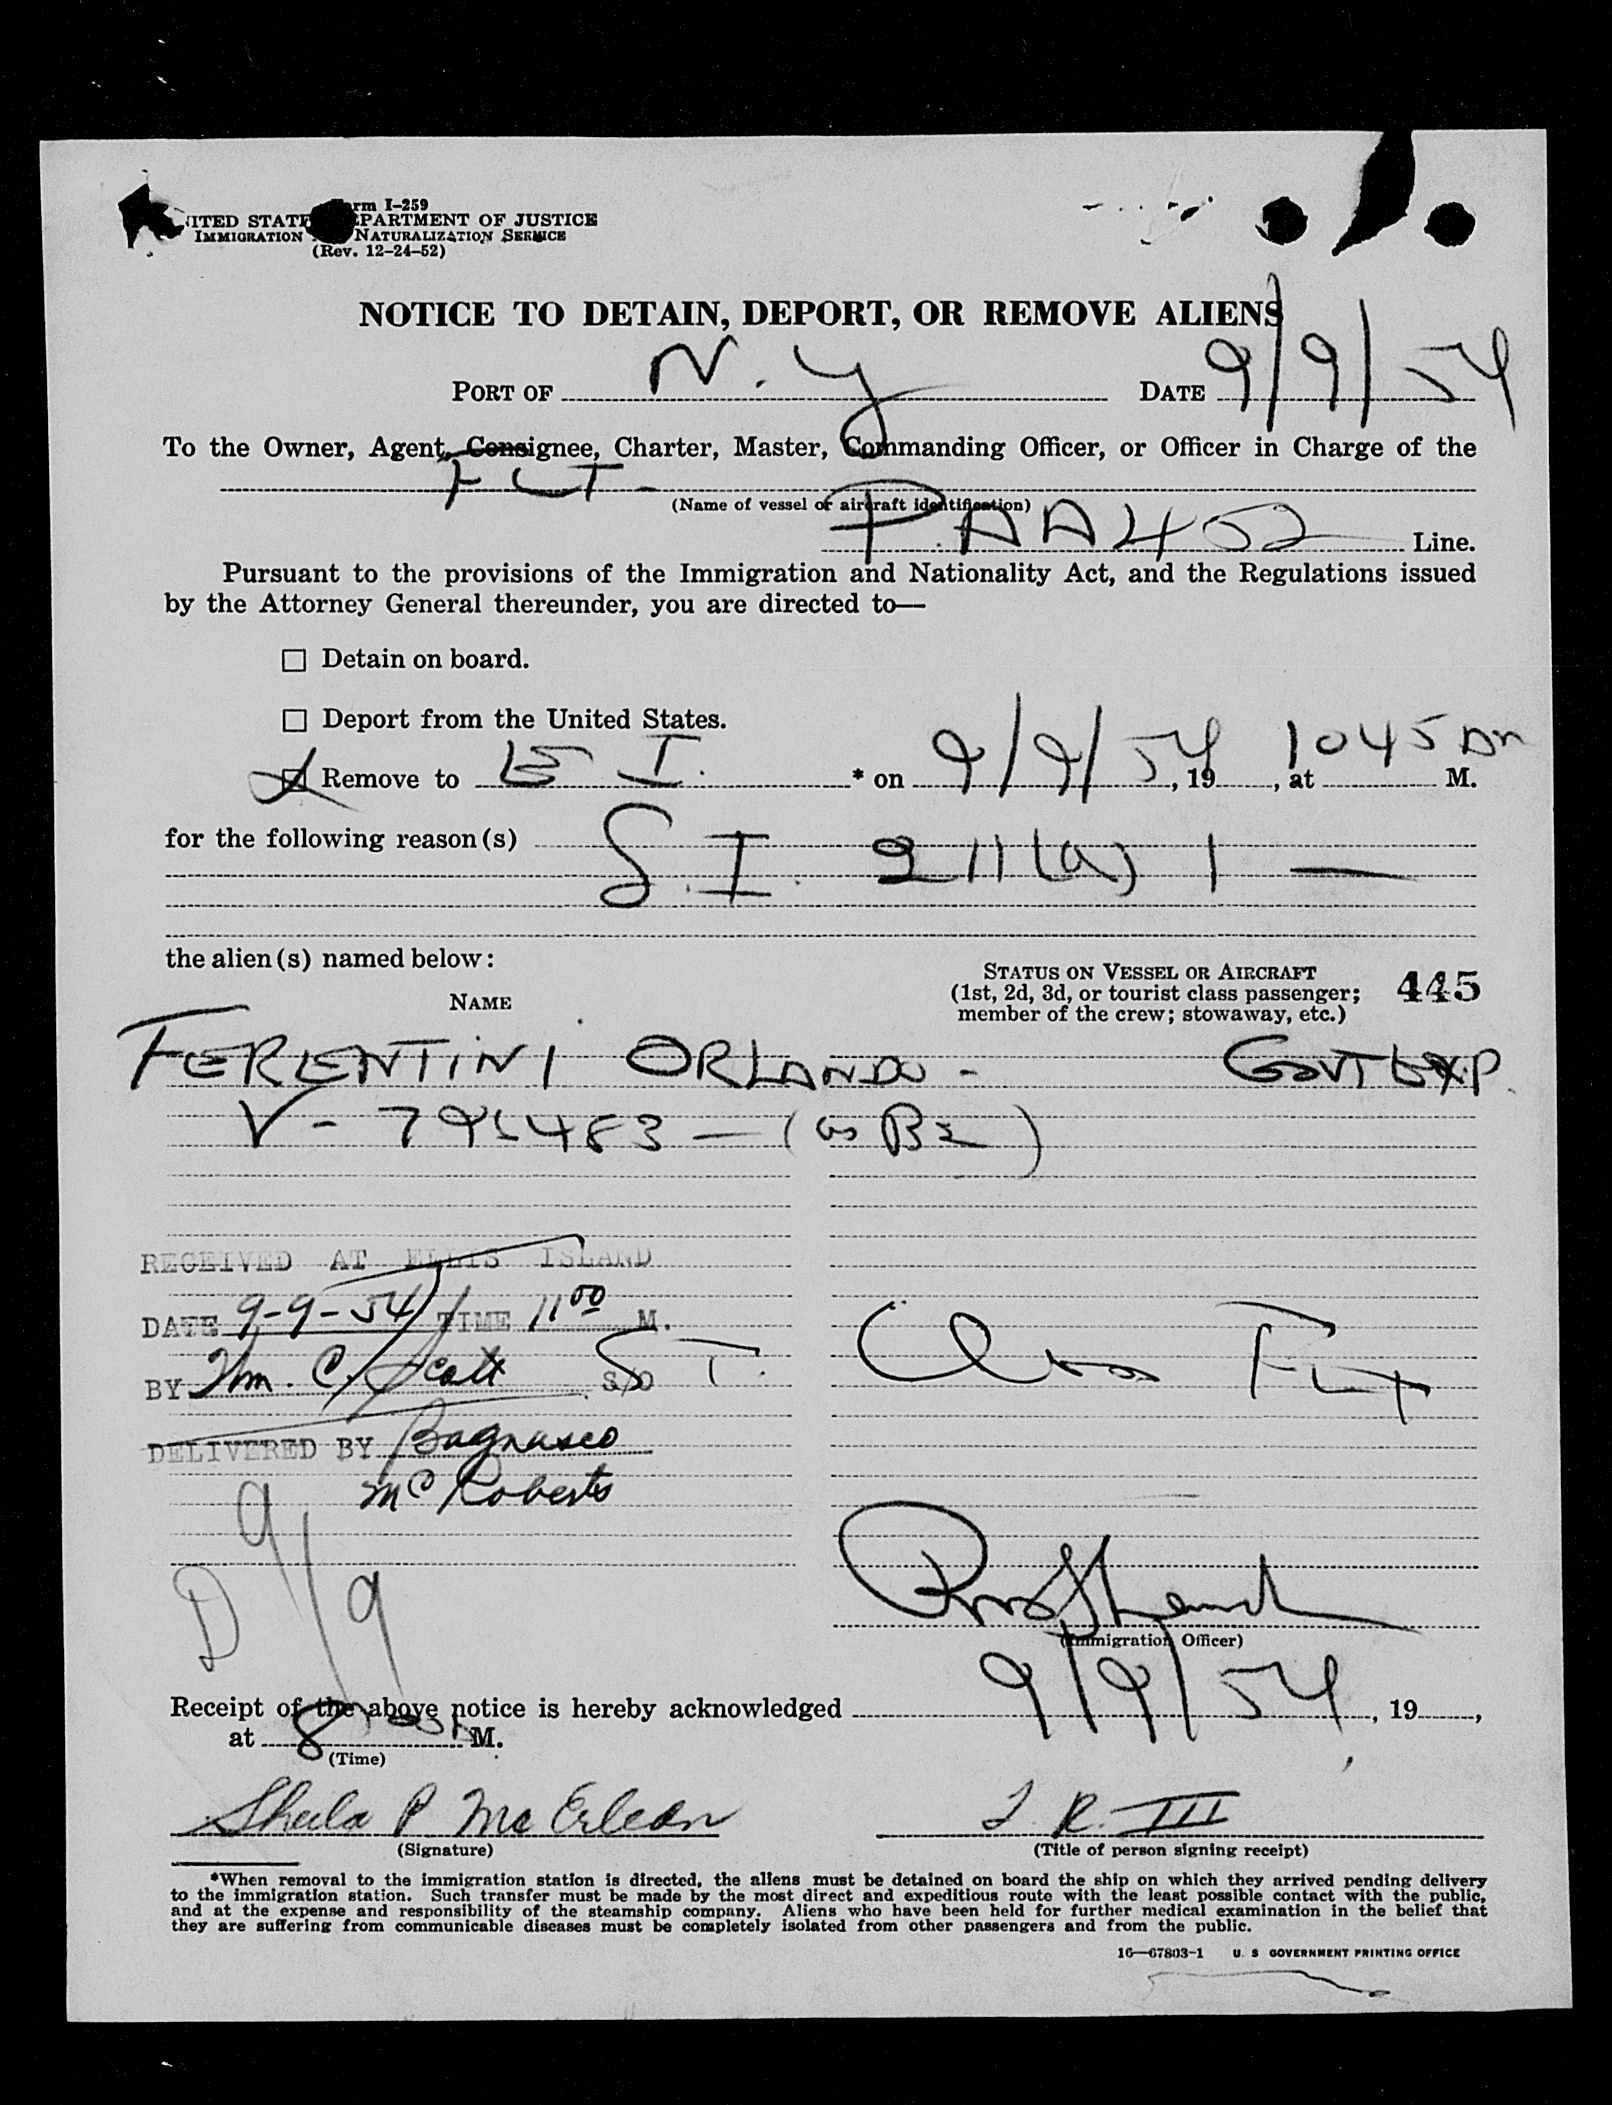 Form I-259
UNITED STATES DEPARTMENT OF JUSTICE
IMMIGRATION AND NATURALIZATION SERVICE
(Rev. 12-24-52)
NOTICE TO DETAIN, DEPORT, OR REMOVE ALIENS
PORT OF N.Y DATE 9/9/54
To the Owner, Agent, Consignee, Charter, Master, Commanding Officer, or Officer in Charge of the
FLT -
(Name of vessel or aircraft identification)
P.AA 452 Line.
Pursuant to the provisions of the Immigration and Nationality Act, and the Regulations issued
by the Attorney General thereunder, you are directed to—
☐ Detain on board.
☐ Deport from the United States.
☒ Remove to E I. * on 9/9/54, 19, at 1045 am M.
for the following reason(s) S.I. 211(a) 1 —
the alien(s) named below:
NAME
STATUS ON VESSEL OR AIRCRAFT
(1st, 2d, 3d, or tourist class passenger;
member of the crew; stowaway, etc.)
445
FERENTINI ORLANDO - GOVT EXP.
RECEIVED AT ELLIS ISLAND
DATE 9-9-54 TIME 11 00 M.
BY Wm. C. Scott S/O
DELIVERED BY Bagnasco
McRoberts
D 9/9
(Immigration Officer)
Receipt of the above notice is hereby acknowledged 9/9/54, 19,
at 8 M.
(Time)
Sheila P McErlean
(Signature)
I. R. III
(Title of person signing receipt)
*When removal to the immigration station is directed, the aliens must be detained on board the ship on which they arrived pending delivery
to the immigration station. Such transfer must be made by the most direct and expeditious route with the least possible contact with the public,
and at the expense and responsibility of the steamship company. Aliens who have been held for further medical examination in the belief that
they are suffering from communicable diseases must be completely isolated from other passengers and from the public.
16—67803-1 U. S GOVERNMENT PRINTING OFFICE